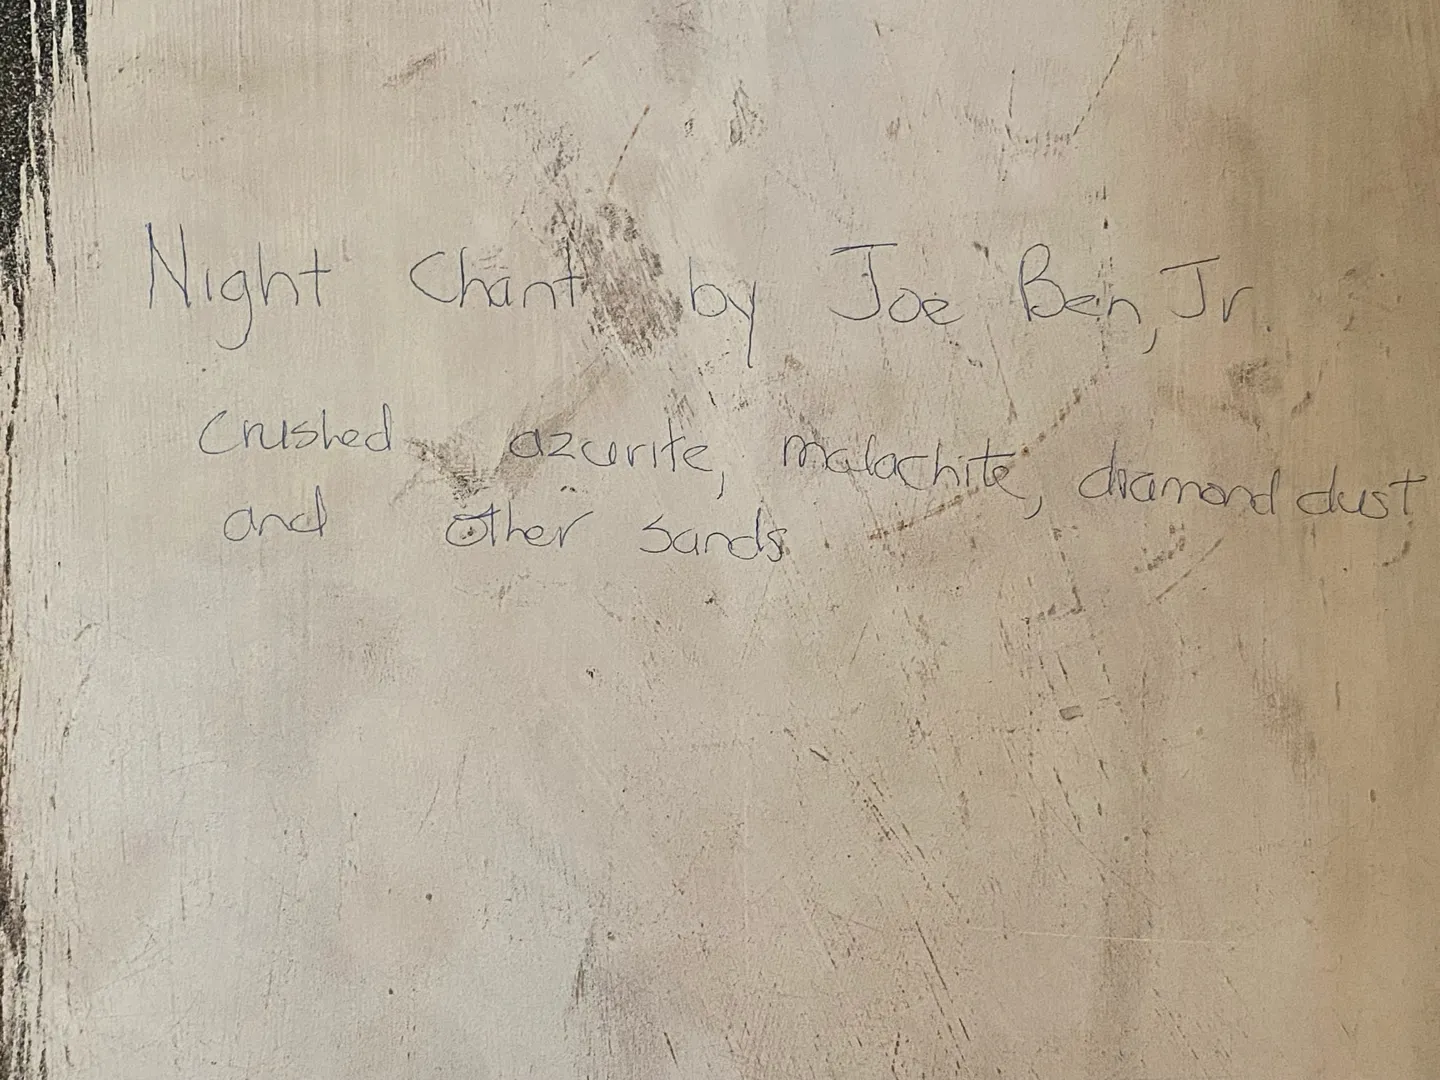 Night Chant by Joe Ben, Jr.
Crushed azurite, malachite, diamond dust
and other sands